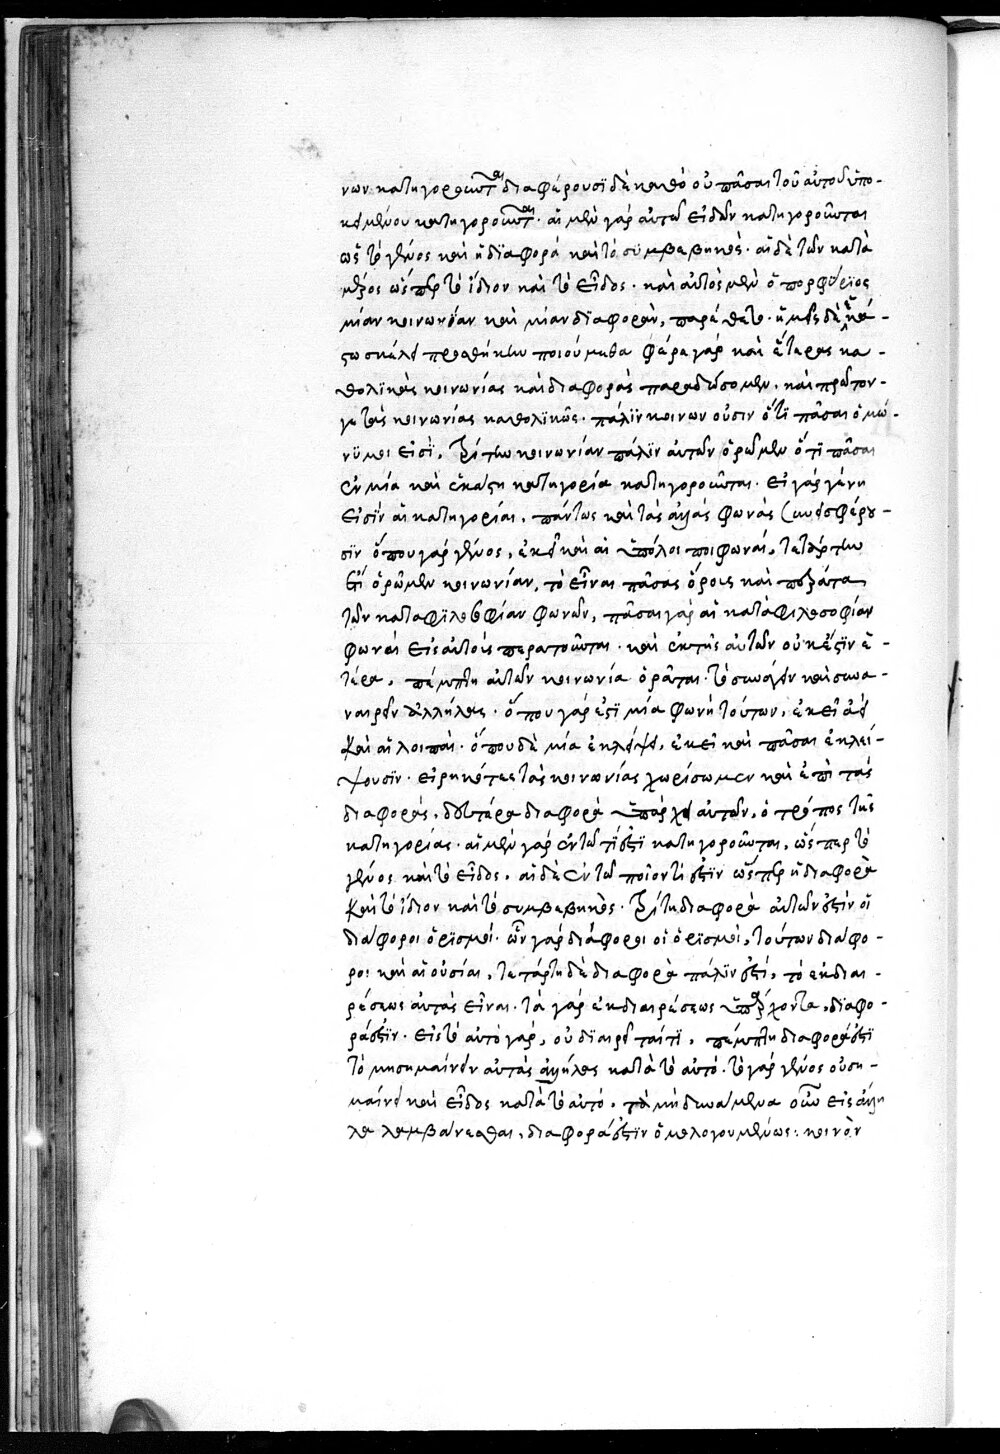 νων κατηγοροῦνται διαφέρουσϊ δὲ καθὸ οὐ πᾶσαι τοῦ αὐτοῦ ὑπο-
κειμένου κατηγοροῦνται· αἱ μὲν γὰρ αὐτῶν εἰδῶν κατηγοροῦνται
ὡς τὸ γένος καὶ ἡ διαφορὰ καὶ τὸ συμβεβηκός· αἱ δὲ τῶν κατὰ
μέρος ὥσπερ τὸ ἴδιον καὶ τὸ εἶδος· καὶ αὐτὸς μὲν ὁ πορφύρϊος
μίαν κοινωνίαν καὶ μίαν διαφορὰν, παρέθετο· ἡμεῖς δὲ
προσθήκην ποιούμεθα φέρε γὰρ καὶ ἑτέρας κα-
θολϊκὰς κοινωνίας καὶ διαφορὰς παραδώσομεν. καὶ πρῶτον
γε τὰς κοινωνίας καθολϊκῶς· πάλϊν κοινωνοῦσιν ὅτϊ πᾶσαι ὁμώ-
νϋμοι εἰσὶ, τρίτην κοινωνίαν πάλϊν αὐτῶν ὁρῶμεν ὅτϊ πᾶσαι
ἐν μία καὶ ἑκάστη κατηγορία κατηγοροῦνται· εἰ γὰρ γένη
εἰσὶν αἱ κατηγορίαι, πάντως καὶ τὰς ἄλλας φωνὰς συνεισφέρου-
σϊν ὅπου γὰρ γένος, ἐκεῖ καὶ αἱ ὑπόλοιποι φωναί, τετάρτην
ἔτι ὁρῶμεν κοινωνίαν, τὸ εἶναι πάσας ὅρους καὶ πέρατα
τῶν κατὰ φϊλοσοφίαν φωνῶν, πᾶσαι γὰρ αἱ κατὰ φιλοσοφίαν
φωναὶ εἰς αὐτοὺς περατοῦνται· καὶ ἐκτὸς αὐτῶν οὐκ ἔστϊν ἑ-
τέρα, πέμπτη αὐτῶν κοινωνία ὁρᾶται· τὸ συνάγειν καὶ συνα-
ναιρεῖν ἀλλήλας· ὅπου γάρ ἐστϊ μία φωνὴ τούτων, ἐκεῖ ἀεὶ
καὶ αἱ λοιπαί· ὅπου δὲ μία ἐκλείψει, ἐκεῖ καὶ πᾶσαι ἐκλεί-
ψουσϊν· εἰρηκότες τὰς κοινωνίας χωρίσωμεν καὶ ἐπὶ τὰς
διαφοράς, δευτέρα διαφορὰ ὑπάρχει αὐτῶν, ὁ τρόπος τῆς
κατηγορίας· αἱ μὲν γὰρ ἐν τῶ τί ἐστϊ κατηγοροῦνται, ὥσπερ τὸ
γένος καὶ τὸ εἶδος. αἱ δὲ ἐν τῶ ποῖόν τί ἐστϊν ὥσπερ ἡ διαφορὰ
καὶ τὸ ἴδιον καὶ τὸ συμβεβηκός· τρίτη διαφορὰ αὐτῶν ἐστὶν οἱ
διάφοροι ὁρϊσμοί· ὧν γὰρ διάφοροι οἱ ὁρϊσμοὶ, τούτων διάφο-
ροι καὶ αἱ οὐσίαι, τετάρτη δὲ διαφορὰ πάλϊν ἐστὶ, τὸ ἐκ διαι-
ρέσεως αὐτὰς εἶναι· τὰ γὰρ ἐκ διαιρέσεως ὑπάρχοντα, διάφο-
ρά ἐστϊν· εἰς τὸ αὐτὸ γὰρ, οὐ διαιρεῖταί τϊ, πέμπτη διαφορά ἐστϊ
τὸ μὴ σημαίνειν αὐτὰς ἀλλήλας κατὰ τὸ αὐτό· τὸ γὰρ γένος οὐ ση-
μαίνει καὶ εἶδος κατὰ τὸ αὐτό, τὰ μὴ δυνάμενα οὖν εἰς ἄλλη
λα λαμβάνεσθαι, διαφορά ἐστϊν ὁμολογουμένως· κοινὸν